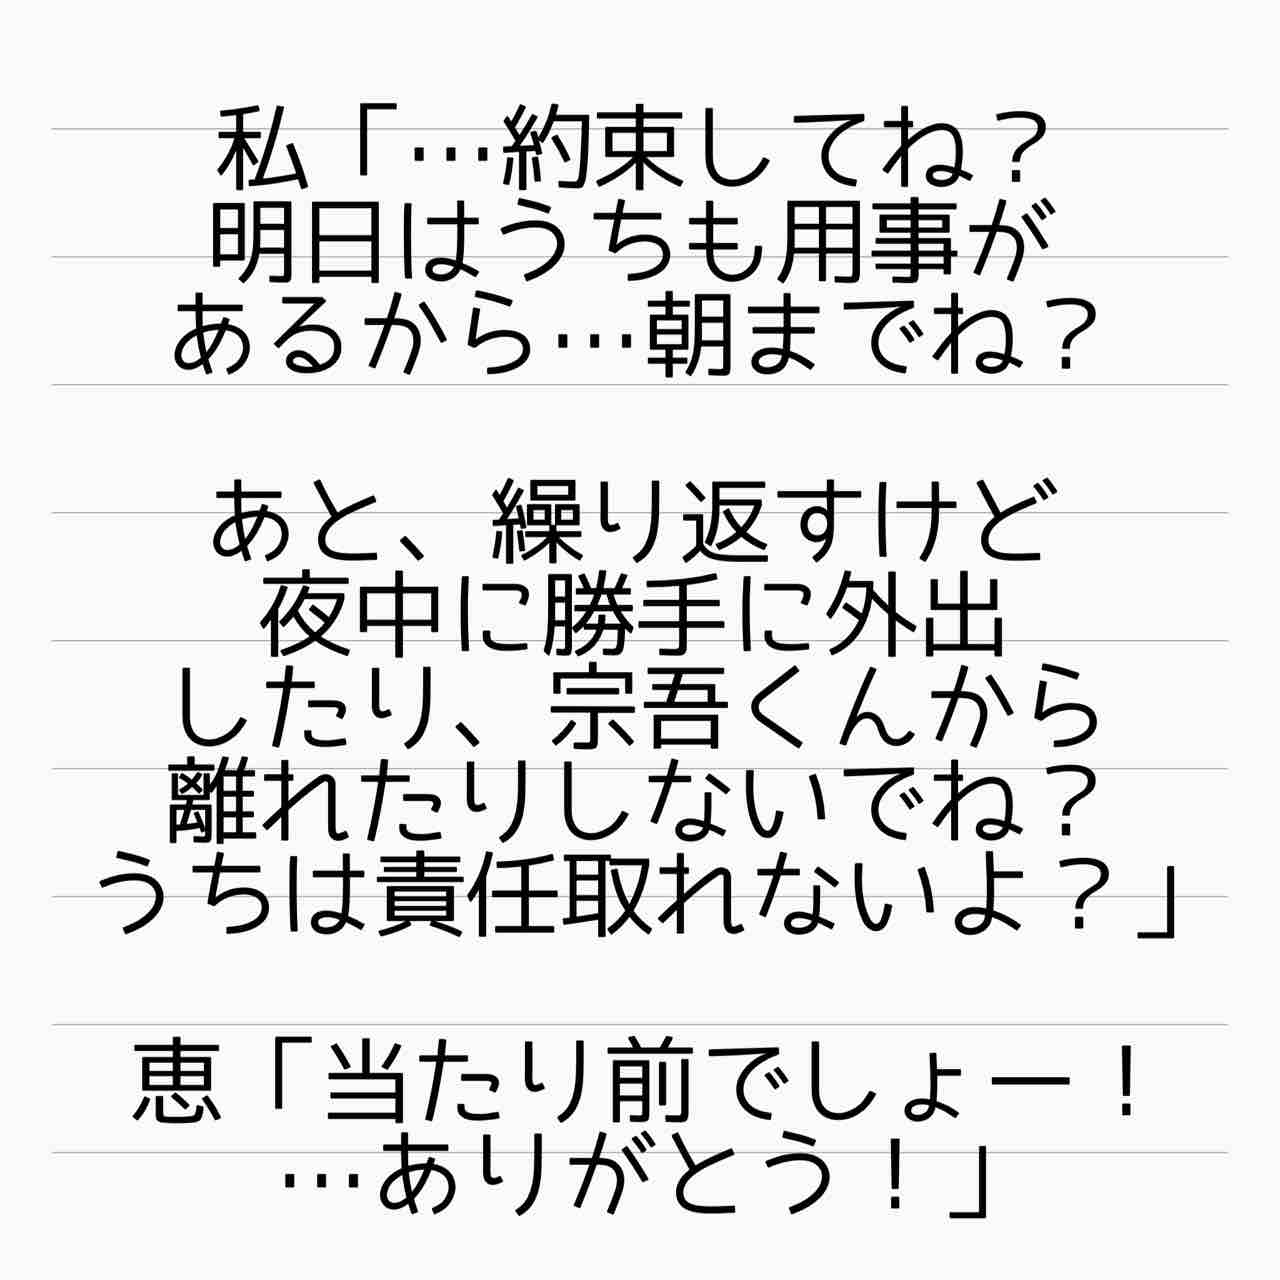 私「…約束してね？
明日はうちも用事が
あるから…朝までね？
あと、繰り返すけど
夜中に勝手に外出
したり、宗吾くんから
離れたりしないでね？
うちは責任取れないよ？」
恵「当たり前でしょー！
…ありがとう！」